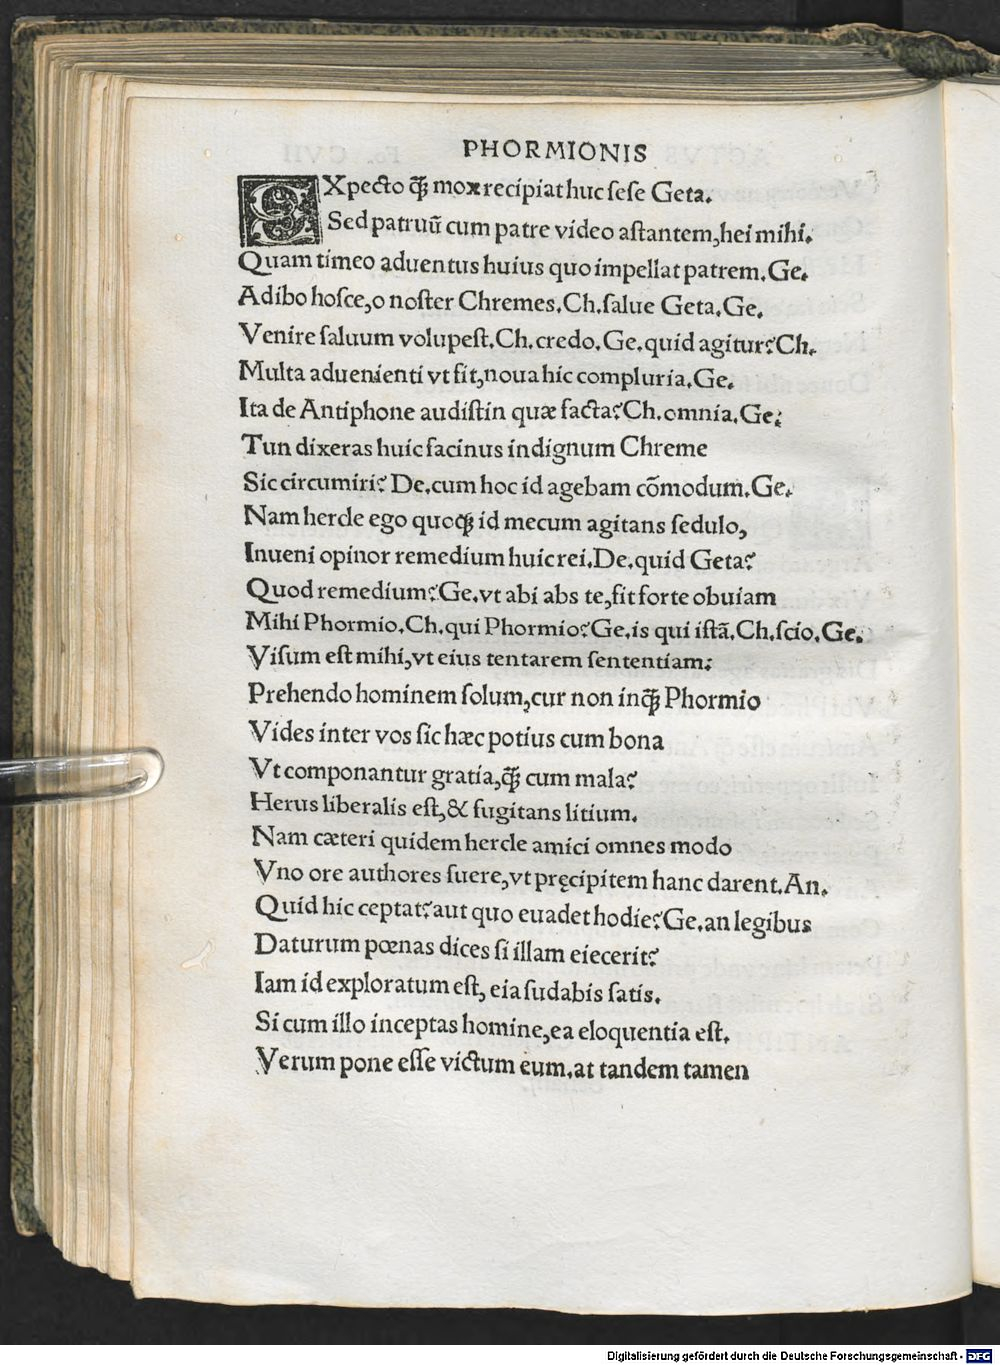 PHORMIONIS
EXpecto q̃ꝫ mox recipiat huc ſeſe Geta.
Sed patruũ cum patre video aſtantem, hei mihi.
Quam timeo aduentus huius quo impellat patrem. Ge.
Adibo hoſce, o noſter Chremes. Ch. ſalue Geta. Ge.
Venire ſaluum volupeſt. Ch. credo. Ge. quid agitur? Ch.
Multa aduenienti vt fit, noua hic compluria. Ge.
Ita de Antiphone audiſtin quæ facta? Ch. omnia. Ge.
Tun dixeras huic facinus indignum Chreme
Sic circumiri? De. cum hoc id agebam cõmodum. Ge.
Nam hercle ego quoqꝫ id mecum agitans ſedulo,
Inueni opinor remedium huic rei. De. quid Geta?
Quod remedium? Ge. vt abi abs te, fit forte obuiam
Mihi Phormio. Ch. qui Phormio? Ge. is qui iſtã. Ch. ſcio. Ge.
Viſum eſt mihi, vt eius tentarem ſententiam:
Prehendo hominem ſolum, cur non inq̃ꝫ Phormio
Vides inter vos ſic hæc potius cum bona
Vt componantur gratia, q̃ꝫ cum mala?
Herus liberalis eſt, & fugitans litium.
Nam cæteri quidem hercle amici omnes modo
Vno ore authores fuere, vt pręcipitem hanc darent. An.
Quid hic ceptat? aut quo euadet hodie? Ge. an legibus
Daturum pœnas dices ſi illam eiecerit?
Iam id exploratum eſt, eia ſudabis ſatis.
Si cum illo inceptas homine, ea eloquentia eſt.
Verum pone eſſe victum eum. at tandem tamen
Digitalisierung gefördert durch die Deutsche Forschungsgemeinschaft - DFG